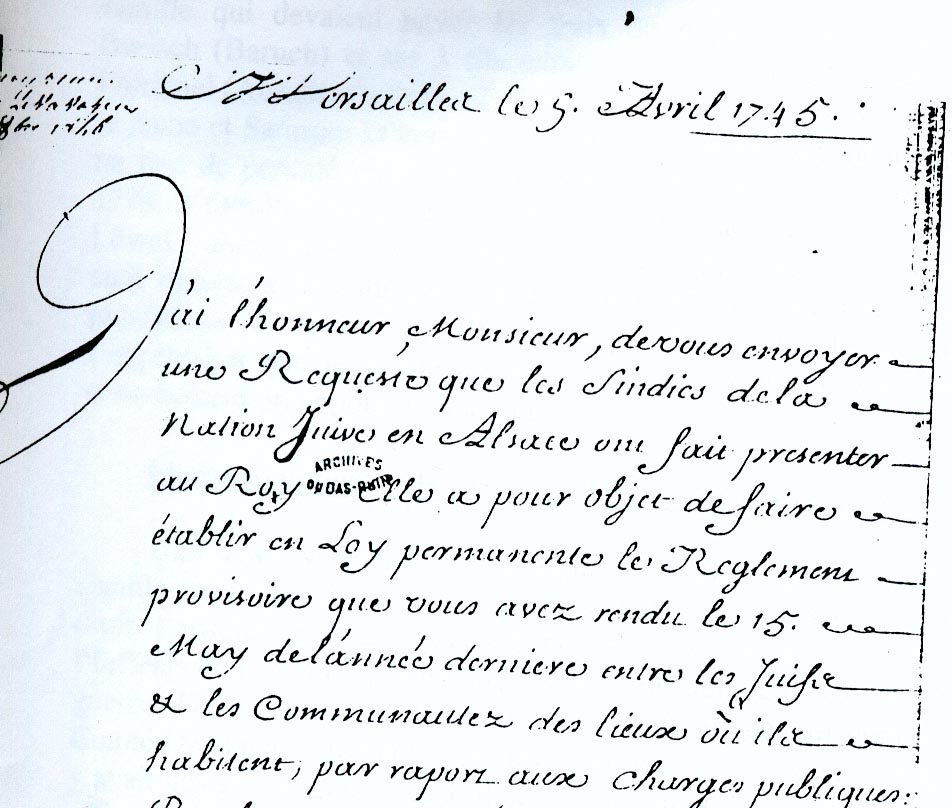 A Versailles le 5. Avril 1745.
J'ai l'honneur, Monsieur, de vous envoyer
une Requeste que les Sindics de la
Nation Juive en Alsace ont fait presenter
au Roy Elle a pour objet de faire
ARCHIVES
DU BAS-RHIN
établir en Loy permanente le Reglement
provisoire que vous avez rendu le 15.
May de l'année derniere entre les Juifs
& les Communautez des lieux où ils
habitent, par raport aux charges publiques: